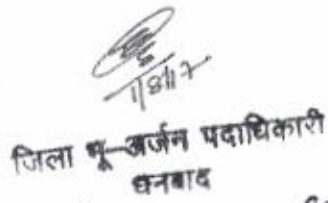 1/8/17
जिला भू-अर्जन पदाधिकारी
धनबाद